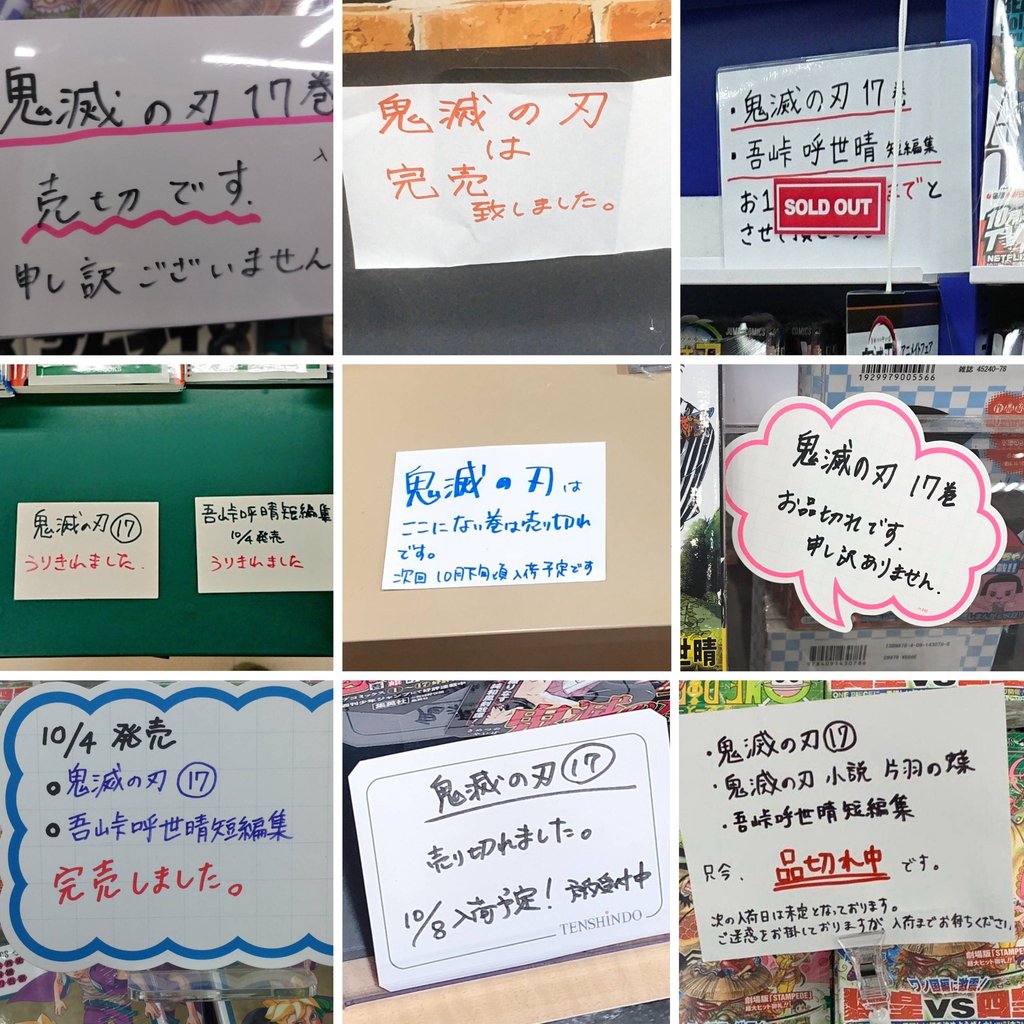 鬼滅の刃 17巻
売切です.
申し訳ございません
鬼滅の刃
は
完売
致しました。
・鬼滅の刃 17巻
・吾峠呼世晴 短編集
お1
までと
SOLD OUT
NETFLIX
鬼滅の刃⑰
うりきれました.
吾峠呼世晴短編集
10/4 発売
うりきれました
鬼滅の刃は
ここにない巻は売り切れ
です。
次回 10月下旬頃入荷予定です
雑誌 45240-78
1929979005566
鬼滅の刃 17巻
お品切れです.
申し訳ありません.
世晴
10/4 発売
鬼滅の刃 ⑰
吾峠呼世晴短編集
完売しました。
鬼滅の刃⑰
売り切れました。
10/8入荷予定! 予約受付中
TENSHINDO
・鬼滅の刃⑰
・鬼滅の刃 小説 片羽の蝶
・吾峠呼世晴短編集
只今、品切れ中です。
次の入荷日は未定となっております。
ご迷惑をお掛けしておりますが、入荷までお待ちください
劇場版「STAMPEDE」
超大ヒット御礼!!
VS